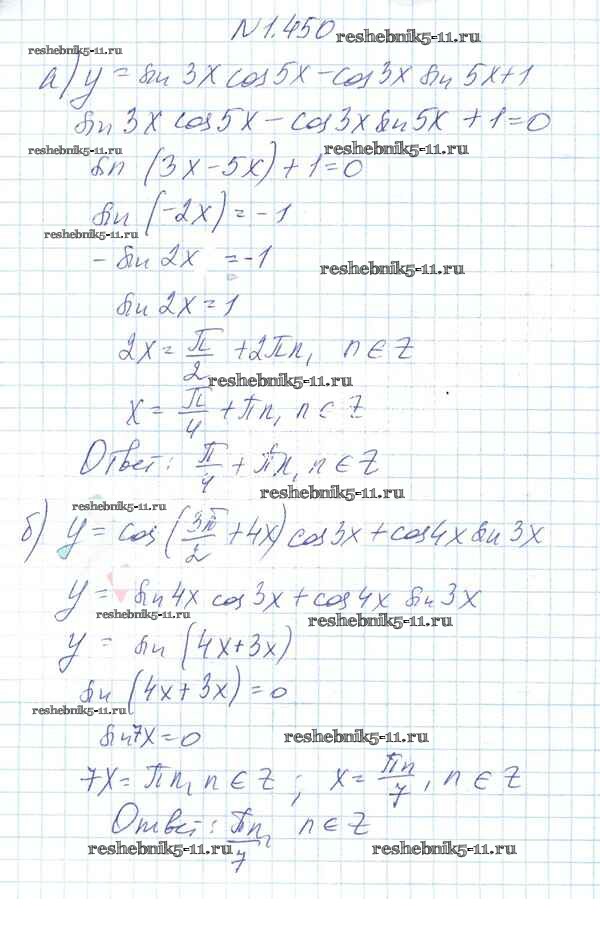 №1.450 reshebnik5-11.ru
reshebnik5-11.ru
а) y = sin 3x cos 5x - cos 3x sin 5x + 1
sin 3x cos 5x - cos 3x sin 5x + 1 = 0
reshebnik5-11.ru reshebnik5-11.ru
sin (3x - 5x) + 1 = 0
sin (-2x) = -1
reshebnik5-11.ru
- sin 2x = -1
reshebnik5-11.ru
sin 2x = 1
2x = π/2 + 2πn, n ∈ Z
reshebnik5-11.ru
x = π/4 + πn, n ∈ Z
Ответ: π/4 + πn, n ∈ Z
reshebnik5-11.ru
reshebnik5-11.ru
б) y = cos (3π/2 + 4x) cos 3x + cos 4x sin 3x
y = sin 4x cos 3x + cos 4x sin 3x
reshebnik5-11.ru reshebnik5-11.ru
y = sin (4x + 3x)
sin (4x + 3x) = 0
reshebnik5-11.ru
sin 7x = 0 reshebnik5-11.ru
7x = πn, n ∈ Z ; x = πn/7, n ∈ Z
Ответ: πn/7, n ∈ Z
reshebnik5-11.ru reshebnik5-11.ru